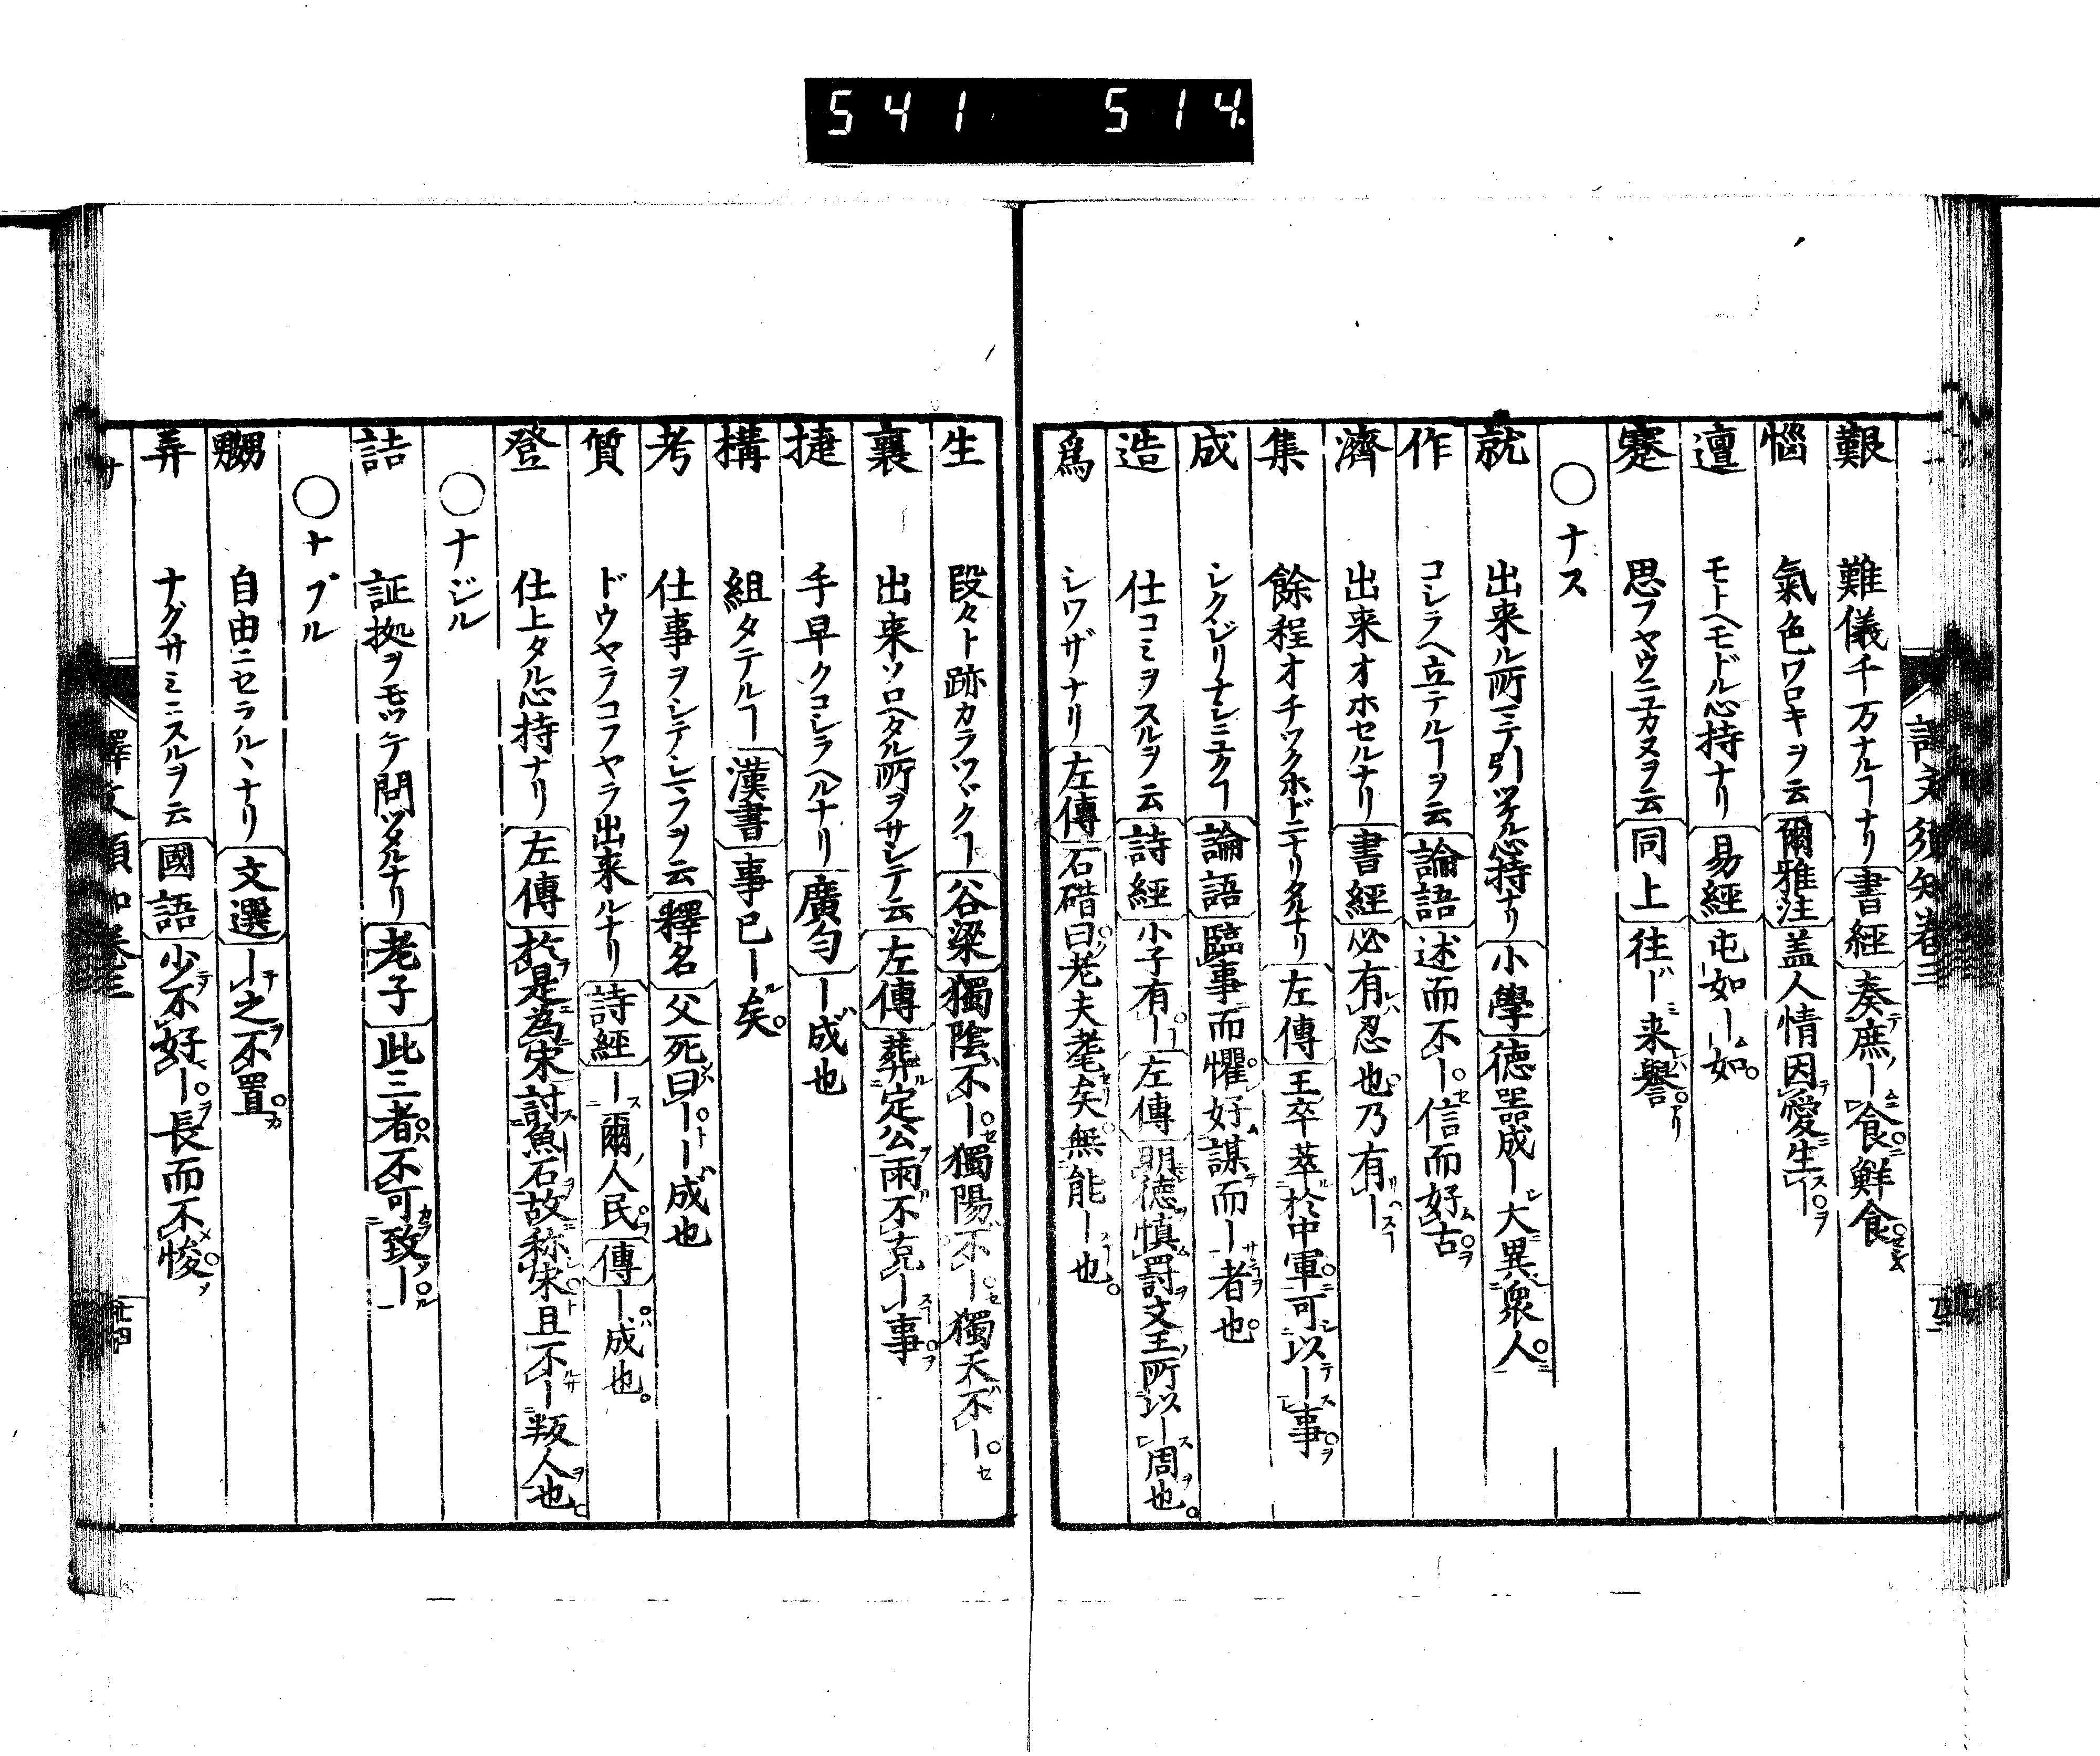 541 514
艱 難儀千万ナルヿナリ 書經 奏庶ー食鮮食
惱 氣色ワロキヲ云 爾雅注 盖人情因愛生ー
邅 モトヘモドル心持ナリ 易經 屯如ー如
蹇 思フヤウニユカヌヲ云 同上 往ー来譽
○ナス
就 出来ル所ニテ引ツケル心持ナリ 小學 德器成ー大異衆人
作 コシラヘ立テルヿヲ云 論語 述而不ー信而好古
濟 出来オホセルナリ 書經 必有忍也乃有ー
集 餘程オチツクホドニナリタルナリ 左傳 王卒萃於中軍可以ー事
成 シクジリナシニユクヿ 論語 臨事而懼好謀而ー者也
造 仕コミヲスルヲ云 詩經 小子有ー 左傳 明德慎罰文王所以ー周也
爲 シワザナリ 左傳 石碏曰老夫耄矣無能ー也
生 段々ト跡カラツヾクヿ 谷梁 獨陰不ー獨陽不ー獨天不ー
襄 出来ソロヘタル所ヲサシテ云 左傳 葬定公雨不克ー事
捷 手早クコシラヘルナリ 廣匀 ー成也
構 組タテルヿ 漢書 事已ー矣
考 仕事ヲシテシマフヲ云 釋名 父死曰ーー成也
質 ドウヤラコフヤラ出来ルナリ 詩經 ー爾人民 傳 ー成也
登 仕上タル心持ナリ 左傳 於是為宋討魚石故称宋且不ー叛人也
○ナジル
詰 証拠ヲモツテ問ツメルナリ 老子 此三者不可致ー
○ナブル
嬲 自由ニセラルヽナリ 文選 ー之不置
弄 ナグサミニスルヲ云 國語 少不好ー長而不悛